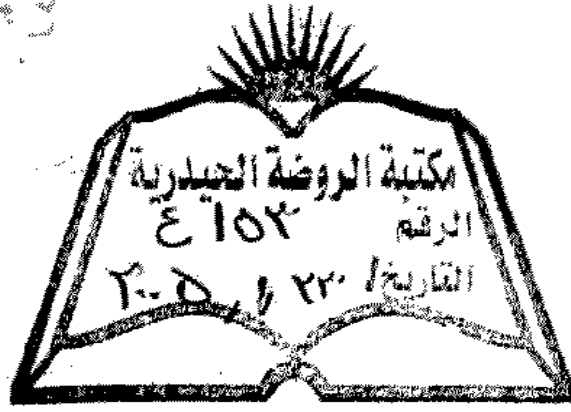 مكتبة الروضة الحيدرية
الرقم ١٥٣ ع
التاريخ